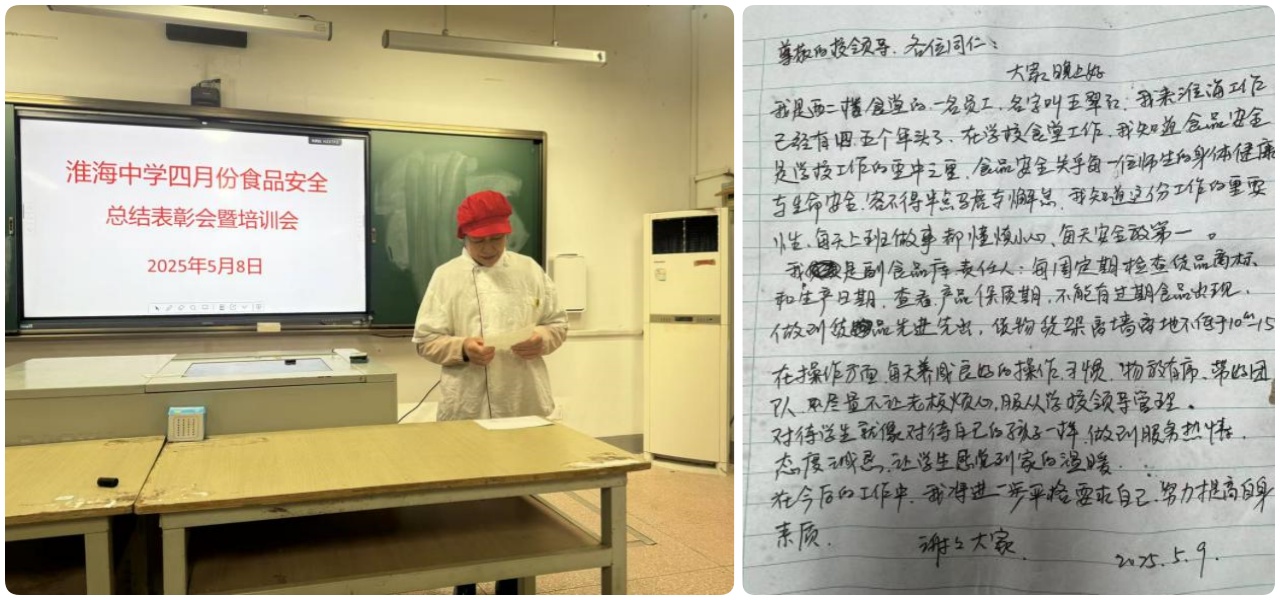 淮海中学四月份食品安全
总结表彰会暨培训会
2025年5月8日
尊敬的校领导、各位同仁：
大家晚上好
我是西二楼食堂的一名员工，名字叫王翠红，我来淮海工作
已经有四、五个年头了，在学校食堂工作，我知道食品安全
是学校工作的重中之重，食品安全关乎每一位师生的身体健康
与生命安全，容不得半点马虎与懈怠，我知道这份工作的重要
性，每天上班做事都谨慎小心，每天安全放第一。
我是副食品库责任人：每周定期检查货品商标、
和生产日期，查看产品保质期，不能有过期食品出现，
做到货品先进先出，货物货架离墙离地不低于10cm-15
在操作方面，每天养成良好的操作习惯，物放有序，带好团
队，尽量不让老板烦心，服从学校领导管理。
对待学生就像对待自己的孩子一样，做到服务热情、
态度诚恳，让学生感觉到家的温暖。
在今后的工作中，我将进一步严格要求自己，努力提高自身
素质。
谢谢大家
2025.5.9.